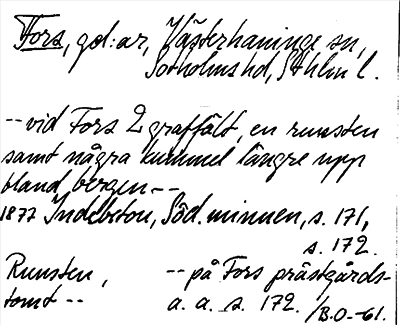 Fors, gd:ar, Västerhaninge sn,
Sotholms hd, Sthlm l.
-- vid Fors 2 graffält, en runsten
samt några kummel längre upp
bland bergen --
1877 Indebetou, Söd. minnen, s. 171,
s. 172.
Runsten, -- på Fors prästgårds-
tomt -- a. a. s. 172. /B.O.-61.